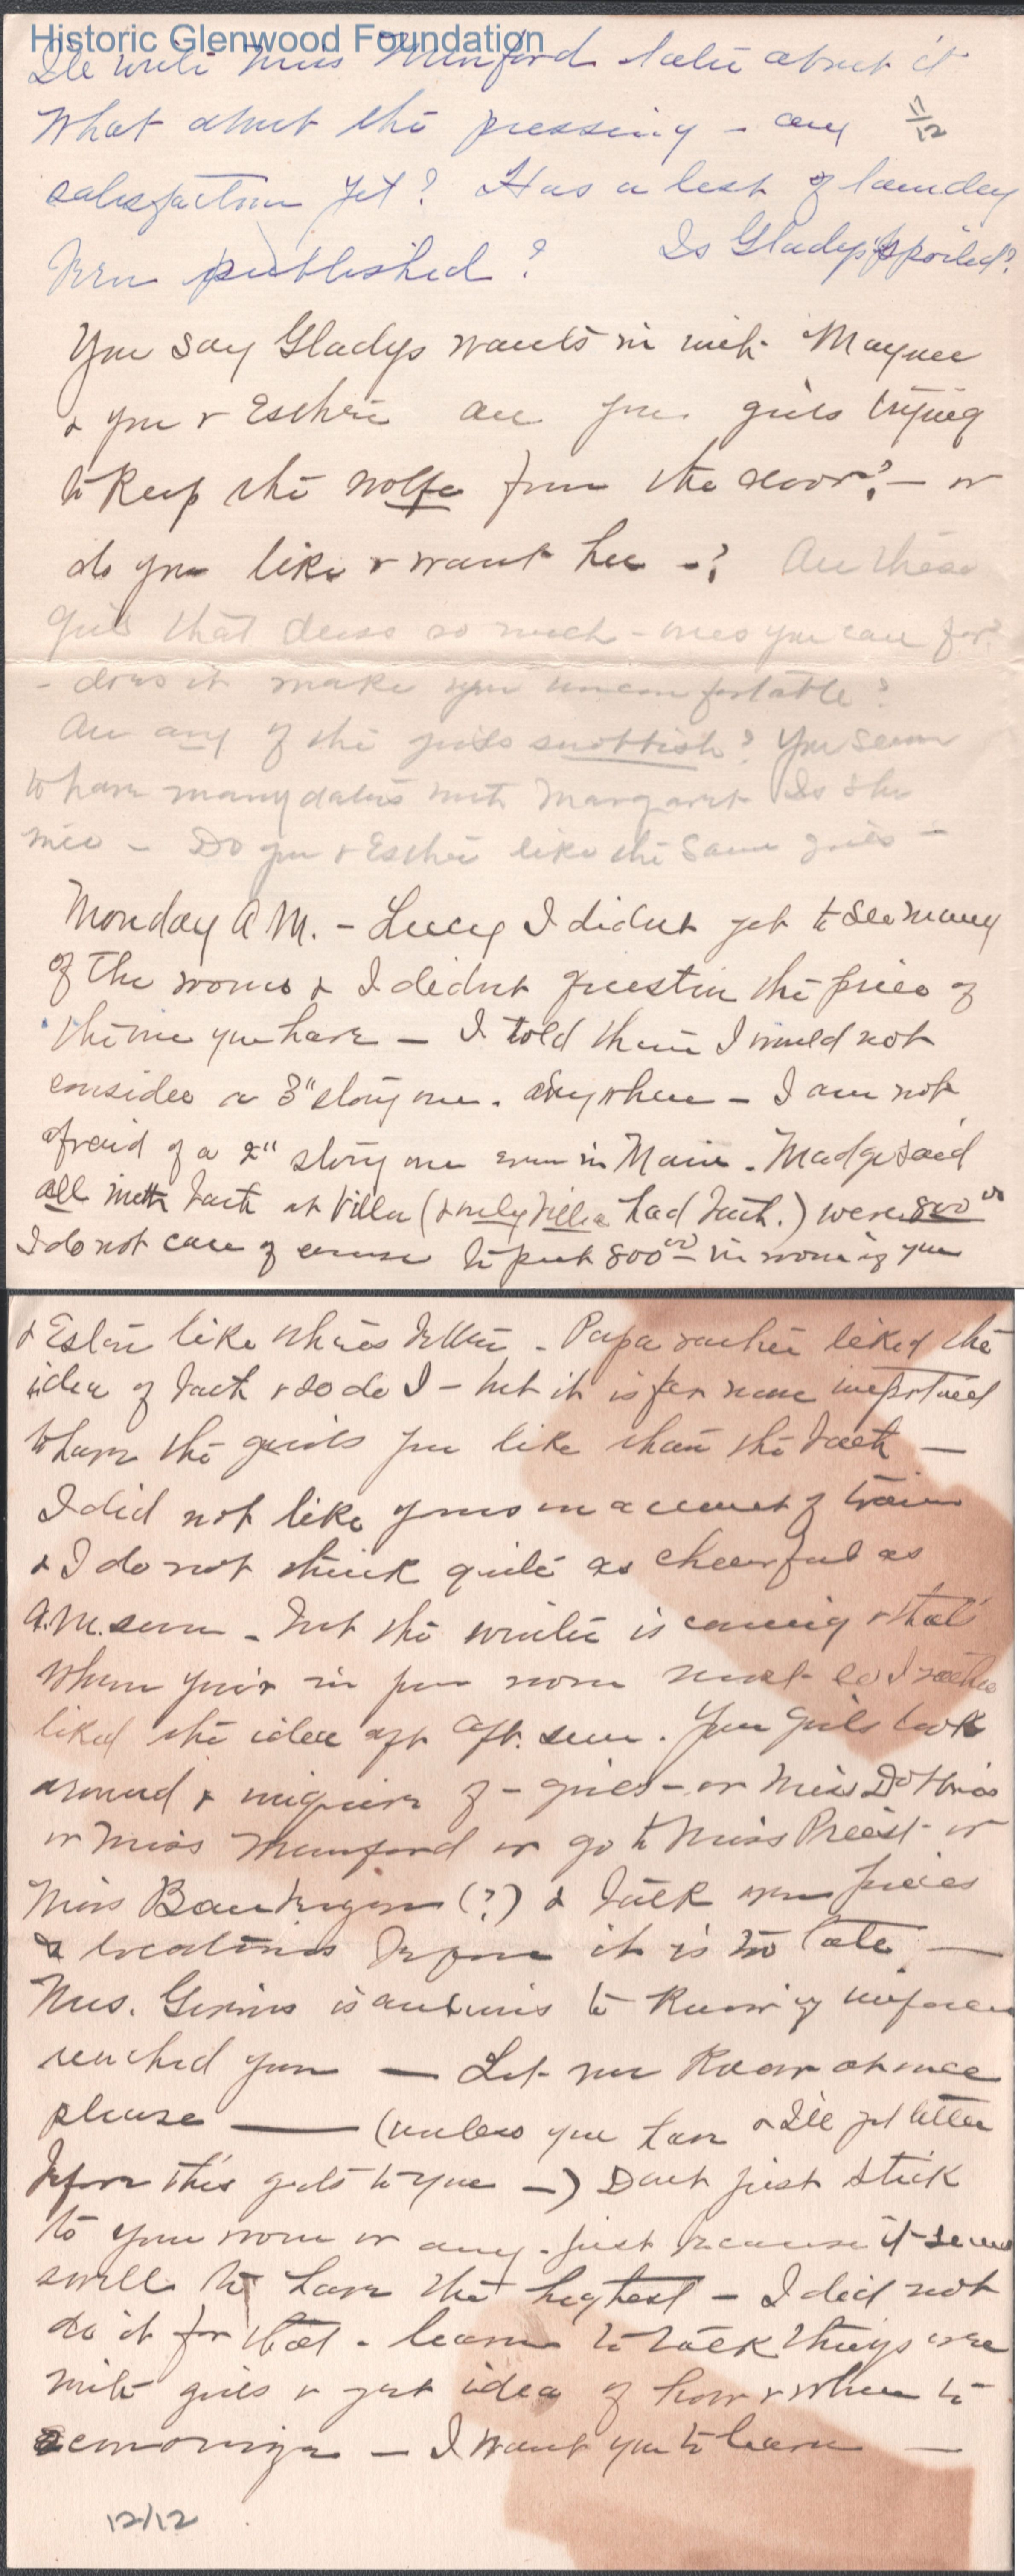 Historic Glenwood Foundation
I'le write Miss Mumford later about it
What about the pressing - any 11/12
satisfaction yet? Has a list of laundry
been published? Is Gladys spoiled?
You say Gladys wants in with Maynee
& you & Esther are you girls trying
to keep the wolfe from the door? - or
do you like & want her -? Are these
girls that dress so much - ones you care for?
- does it make you uncomfortable?
Are any of the girls snobbish? You seem
to have many dates with Margaret Is she
nice - Do you & Esther like the same girls -
Monday A M. - Lucy I didnt get to see many
of the rooms & I didnt question the price of
the one you have - I told them I would not
consider a 3" story one. anywhere - I am not
afraid of a 2" story one even in Main. Madge said
all with bath at Villa (& only Villa had bath.) were 800 00
I do not care of course to put 800 00 in room if you
& Ester like others better - Papa rather liked the
idea of bath & so do I - but it is far more important
to have the girls you like than the bath -
I did not like yours on account of trains
& I do not think quite as cheerful as
A.M. sun - but the winter is coming & that's
when you're in your room most so I rather
liked the idea of aft. sun. You girls look
around & inquire of - girls - or Miss
or Miss Mumford or go to Miss Priest or
Miss (?) & talk over prices
& locations before it is too late -
Mrs. is anxious to know if uniforms
reached you - Let me know at once
please - (unless you have & I'le get letter
before this gets to you -) Dont just stick
to your room or any - just because it seems
swell to have the highest - I did not
do it for that - learn to talk things over
with girls & get idea of how & where to
economize - I want you to learn -
12/12